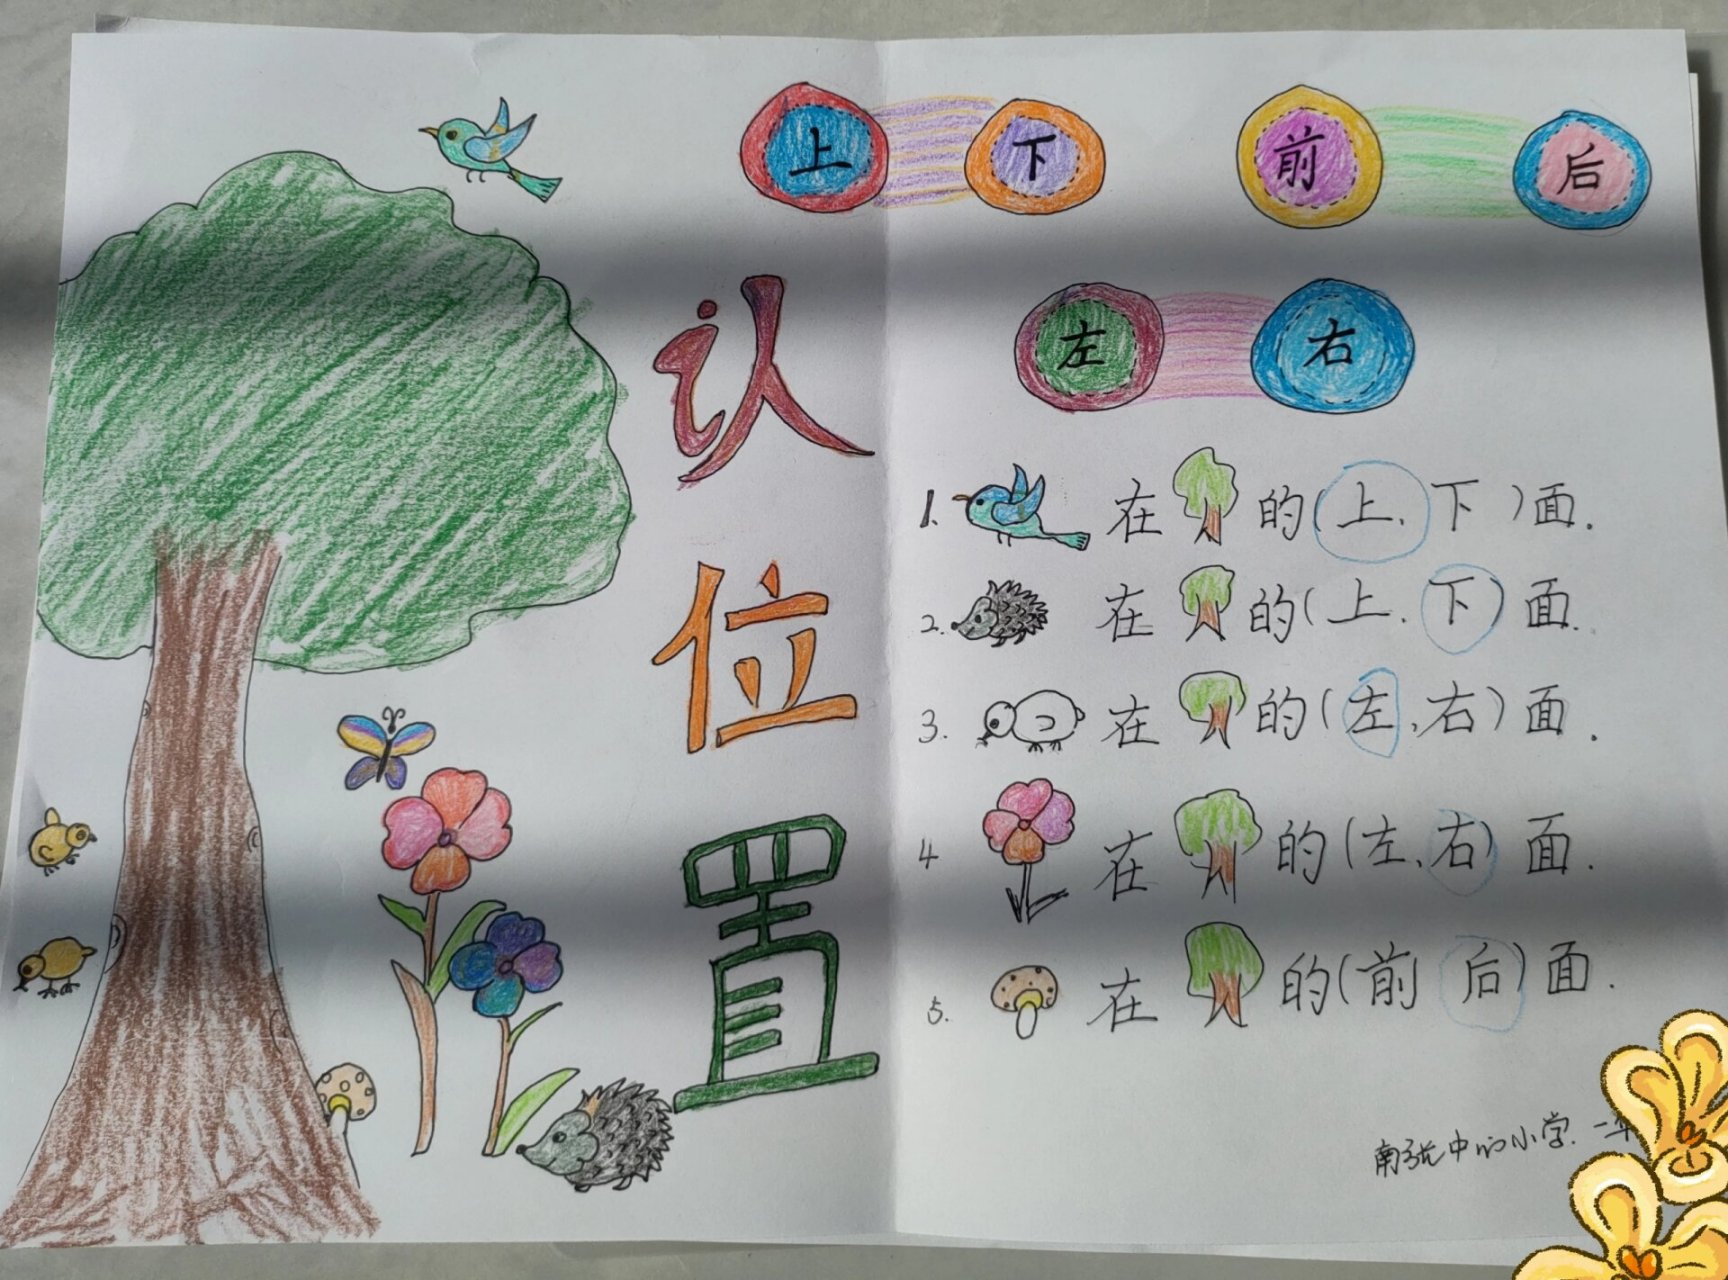 认位置
上 下 前 后
左 右
1. 在 的(上、下)面.
2. 在 的(上、下)面.
3. 在 的(左、右)面.
4 在 的(左、右)面.
5. 在 的(前 后)面.
南 中 小学.